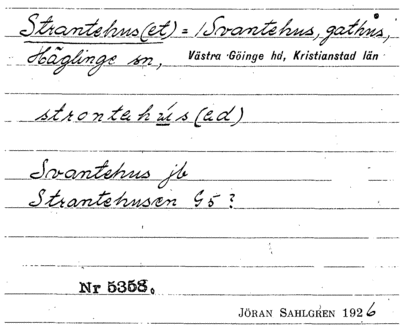 Strantehus(et) = /Svantehus, gathus,
Häglinge sn, Västra Göinge hd, Kristianstad län
strontahús(ad)
Svantehus jb
Strantehusen G5?
Nr 5358.
JÖRAN SAHLGREN 1926